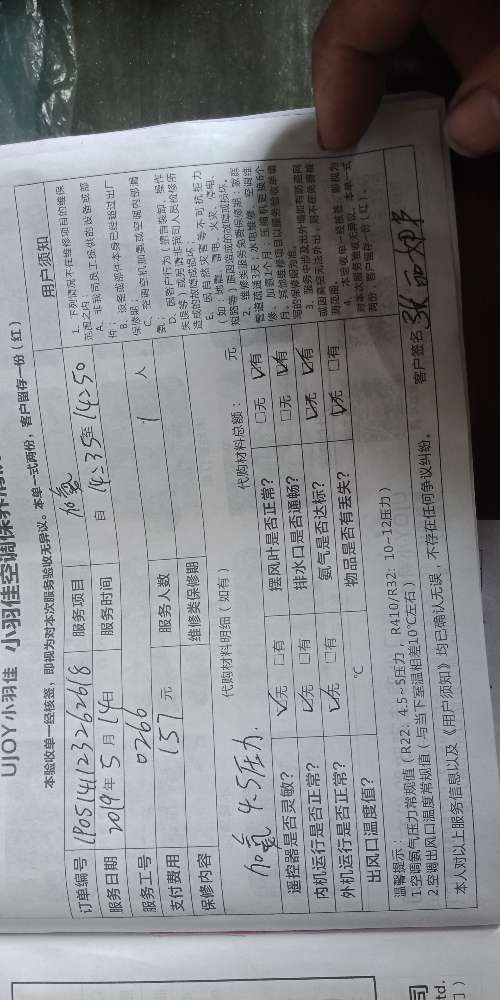 UJOY小羽佳 小羽佳空调保养清洗
本验收单一经核签，即视为对本次服务验收无异议。本单一式两份，客户留存一份（红）
订单编号 LP05141232626 18 服务项目 加氨 用户须知
服务日期 2019年 5月 14日 服务时间 自 14:35 至 14:50
服务工号 0266
支付费用 157 元 服务人数 1 人
保修内容 维修类保修期
1、下列情况不在维修项目的维保范围之内：
A、非我司员工提供的设备或部件；
B、设备或部件本身已经超过出厂保修期；
C、空调空机加氨或空调内部漏氨；
D、因客户行为（擅自装卸、操作失误等）或另请非我司人员检修所造成的故障或损坏；
E、因自然灾害等不可抗拒力（如：地震、雷电、火灾、停电、短路等）原因造成的故障或损坏。
2、维修类服务免费保修期：家庭管道疏通3天，水电维修、空调维修、加氨1个月，压缩机更换6个月，其他维修项目以服务验收单填写的保修期为准。
4、本验收单一经核签，即视为对本次服务验收无异议。本单一式两份，客户留存一份（红）。
代购材料明细（如有） 代购材料总额： 元
加氨 4.5压力.
遥控器是否灵敏？ ☑无 □有 摆风叶是否正常？ □无 ☑有
内机运行是否正常？ ☑无 □有 排水口是否通畅？ □无 ☑有
外机运行是否正常？ ☑无 □有 氨气是否达标？ ☑无 ☑有
出风口温度值？ ℃ 物品是否有丢失？ ☑无 □有
温馨提示：
1.空调氨气压力常规值（R22: 4.5~5压力，R410/R32: 10-12压力）
2.空调出风口温度常规值（与当下室温相差10℃左右）
本人对以上服务信息以及《用户须知》均已确认无误，不存在任何争议纠纷。 客户签名
司
td.
门）